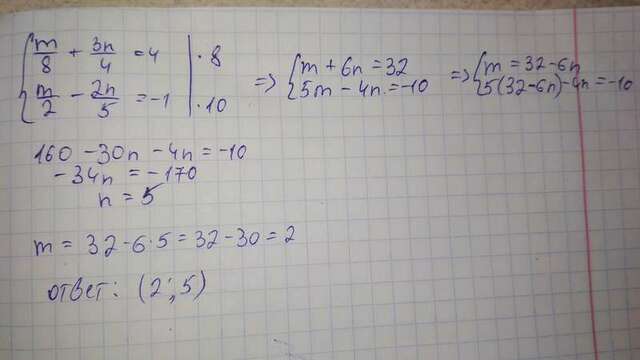 { m/8 + 3n/4 = 4 | · 8
{ m/2 - 2n/5 = -1 | · 10
=> { m + 6n = 32
{ 5m - 4n = -10
=> { m = 32 - 6n
{ 5(32-6n) - 4n = -10
160 - 30n - 4n = -10
-34n = -170
n = 5
m = 32 - 6·5 = 32 - 30 = 2
ответ: (2; 5)